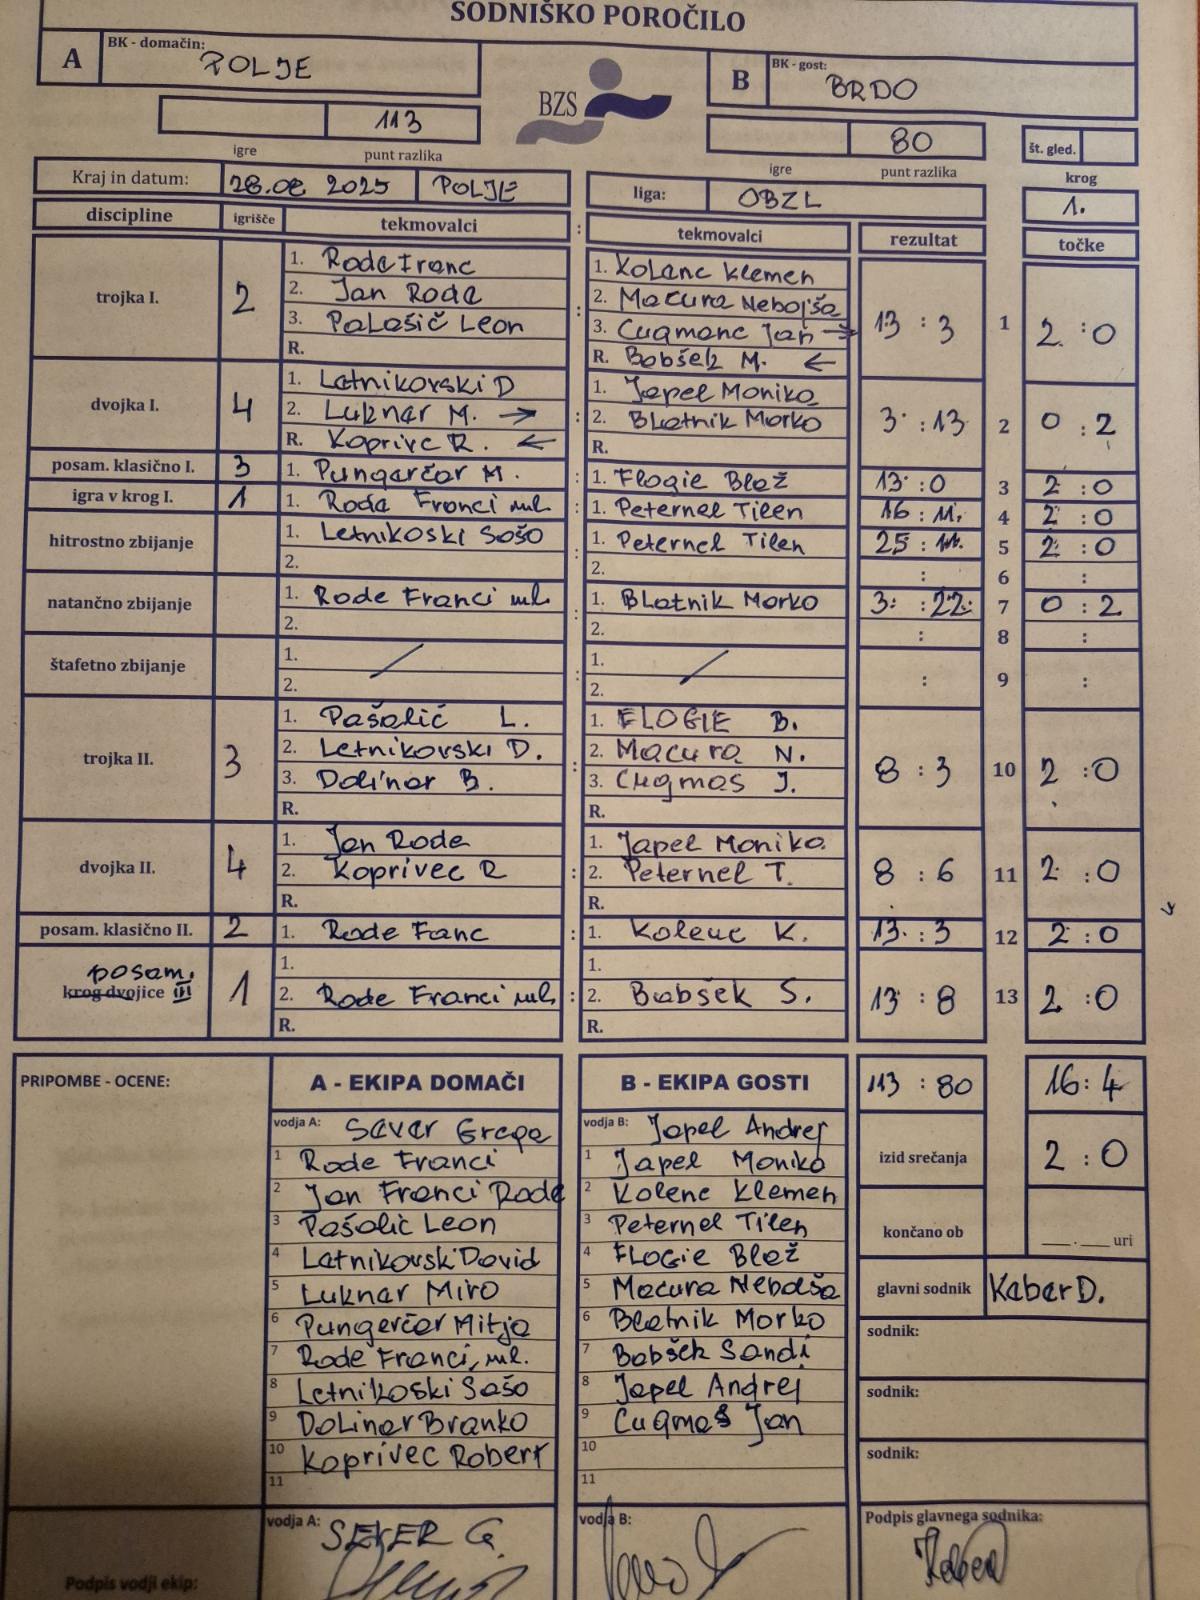 SODNIŠKO POROČILO
A BK - domačin: POLJE
BZS
B BK - gost: BRDO
113
80
št. gled.
igre punt razlika
igre punt razlika
krog
Kraj in datum: 28.08 2025 POLJE
liga: OBZL
1.
discipline igrišče tekmovalci : tekmovalci rezultat točke
trojka I. 2 1. Rode Franc : 1. Kolenc Klemen 13 : 3 1 2 : 0
2. Jan Rode 2. Macura Nebojša
3. Palašič Leon 3. Cugmanc Jan →
R. R. Babšek M. ←
dvojka I. 4 1. Letnikovski D : 1. Japel Monika 3 : 13 2 0 : 2
2. Luknar M. → 2. Blatnik Marko
R. Koprivc R. ← R.
posam. klasično I. 3 1. Pungerčar M. : 1. Flogie Blaž 13 : 0 3 2 : 0
igra v krog I. 1 1. Rode Franci ml. : 1. Peternel Tilen 16 : 11. 4 2 : 0
hitrostno zbijanje 1. Letnikoski Sašo : 1. Peternel Tilen 25 : 11. 5 2 : 0
2. 2. : 6 :
natančno zbijanje 1. Rode Franci ml. : 1. Blatnik Marko 3 : 22 7 0 : 2
2. 2. : 8 :
štafetno zbijanje 1. / : 1. / : 9 :
2. 2.
trojka II. 3 1. Pašalić L. : 1. FLOGIE B. 8 : 3 10 2 : 0
2. Letnikovski D. 2. Macura N.
3. Dolinar B. 3. Cugmas J.
R. R.
dvojka II. 4 1. Jan Rode : 1. Japel Monika 8 : 6 11 2 : 0
2. Koprivec R 2. Peternel T.
R. R.
posam. klasično II. 2 1. Rode Fanc : 1. Kolenc K. 13 : 3 12 2 : 0
posam. III
krog dvojice 1 1. : 1. 13 : 8 13 2 : 0
2. Rode Franci ml. 2. Babšek S.
R. R.
PRIPOMBE - OCENE: A - EKIPA DOMAČI B - EKIPA GOSTI 113 : 80 16 : 4
vodja A: Sever Grega vodja B: Japel Andrej
1 Rode Franci 1 Japel Monika izid srečanja 2 : 0
2 Jan Franci Rode 2 Kolenc Klemen
3 Pašalić Leon 3 Peternel Tilen končano ob ___.___ uri
4 Letnikovski David 4 FLOGIE Blaž
5 Luknar Miro 5 Macura Neboša glavni sodnik Kaber D.
6 Pungerčar Mitja 6 Blatnik Marko sodnik:
7 Rode Franci, ml. 7 Babšek Sandi
8 Letnikoski Sašo 8 Japel Andrej sodnik:
9 Dolinar Branko 9 Cugmas Jan
10 Koprivec Robert 10 sodnik:
11 11
Podpis vodji ekip: vodja A: SEVER G. vodja B: Podpis glavnega sodnika: